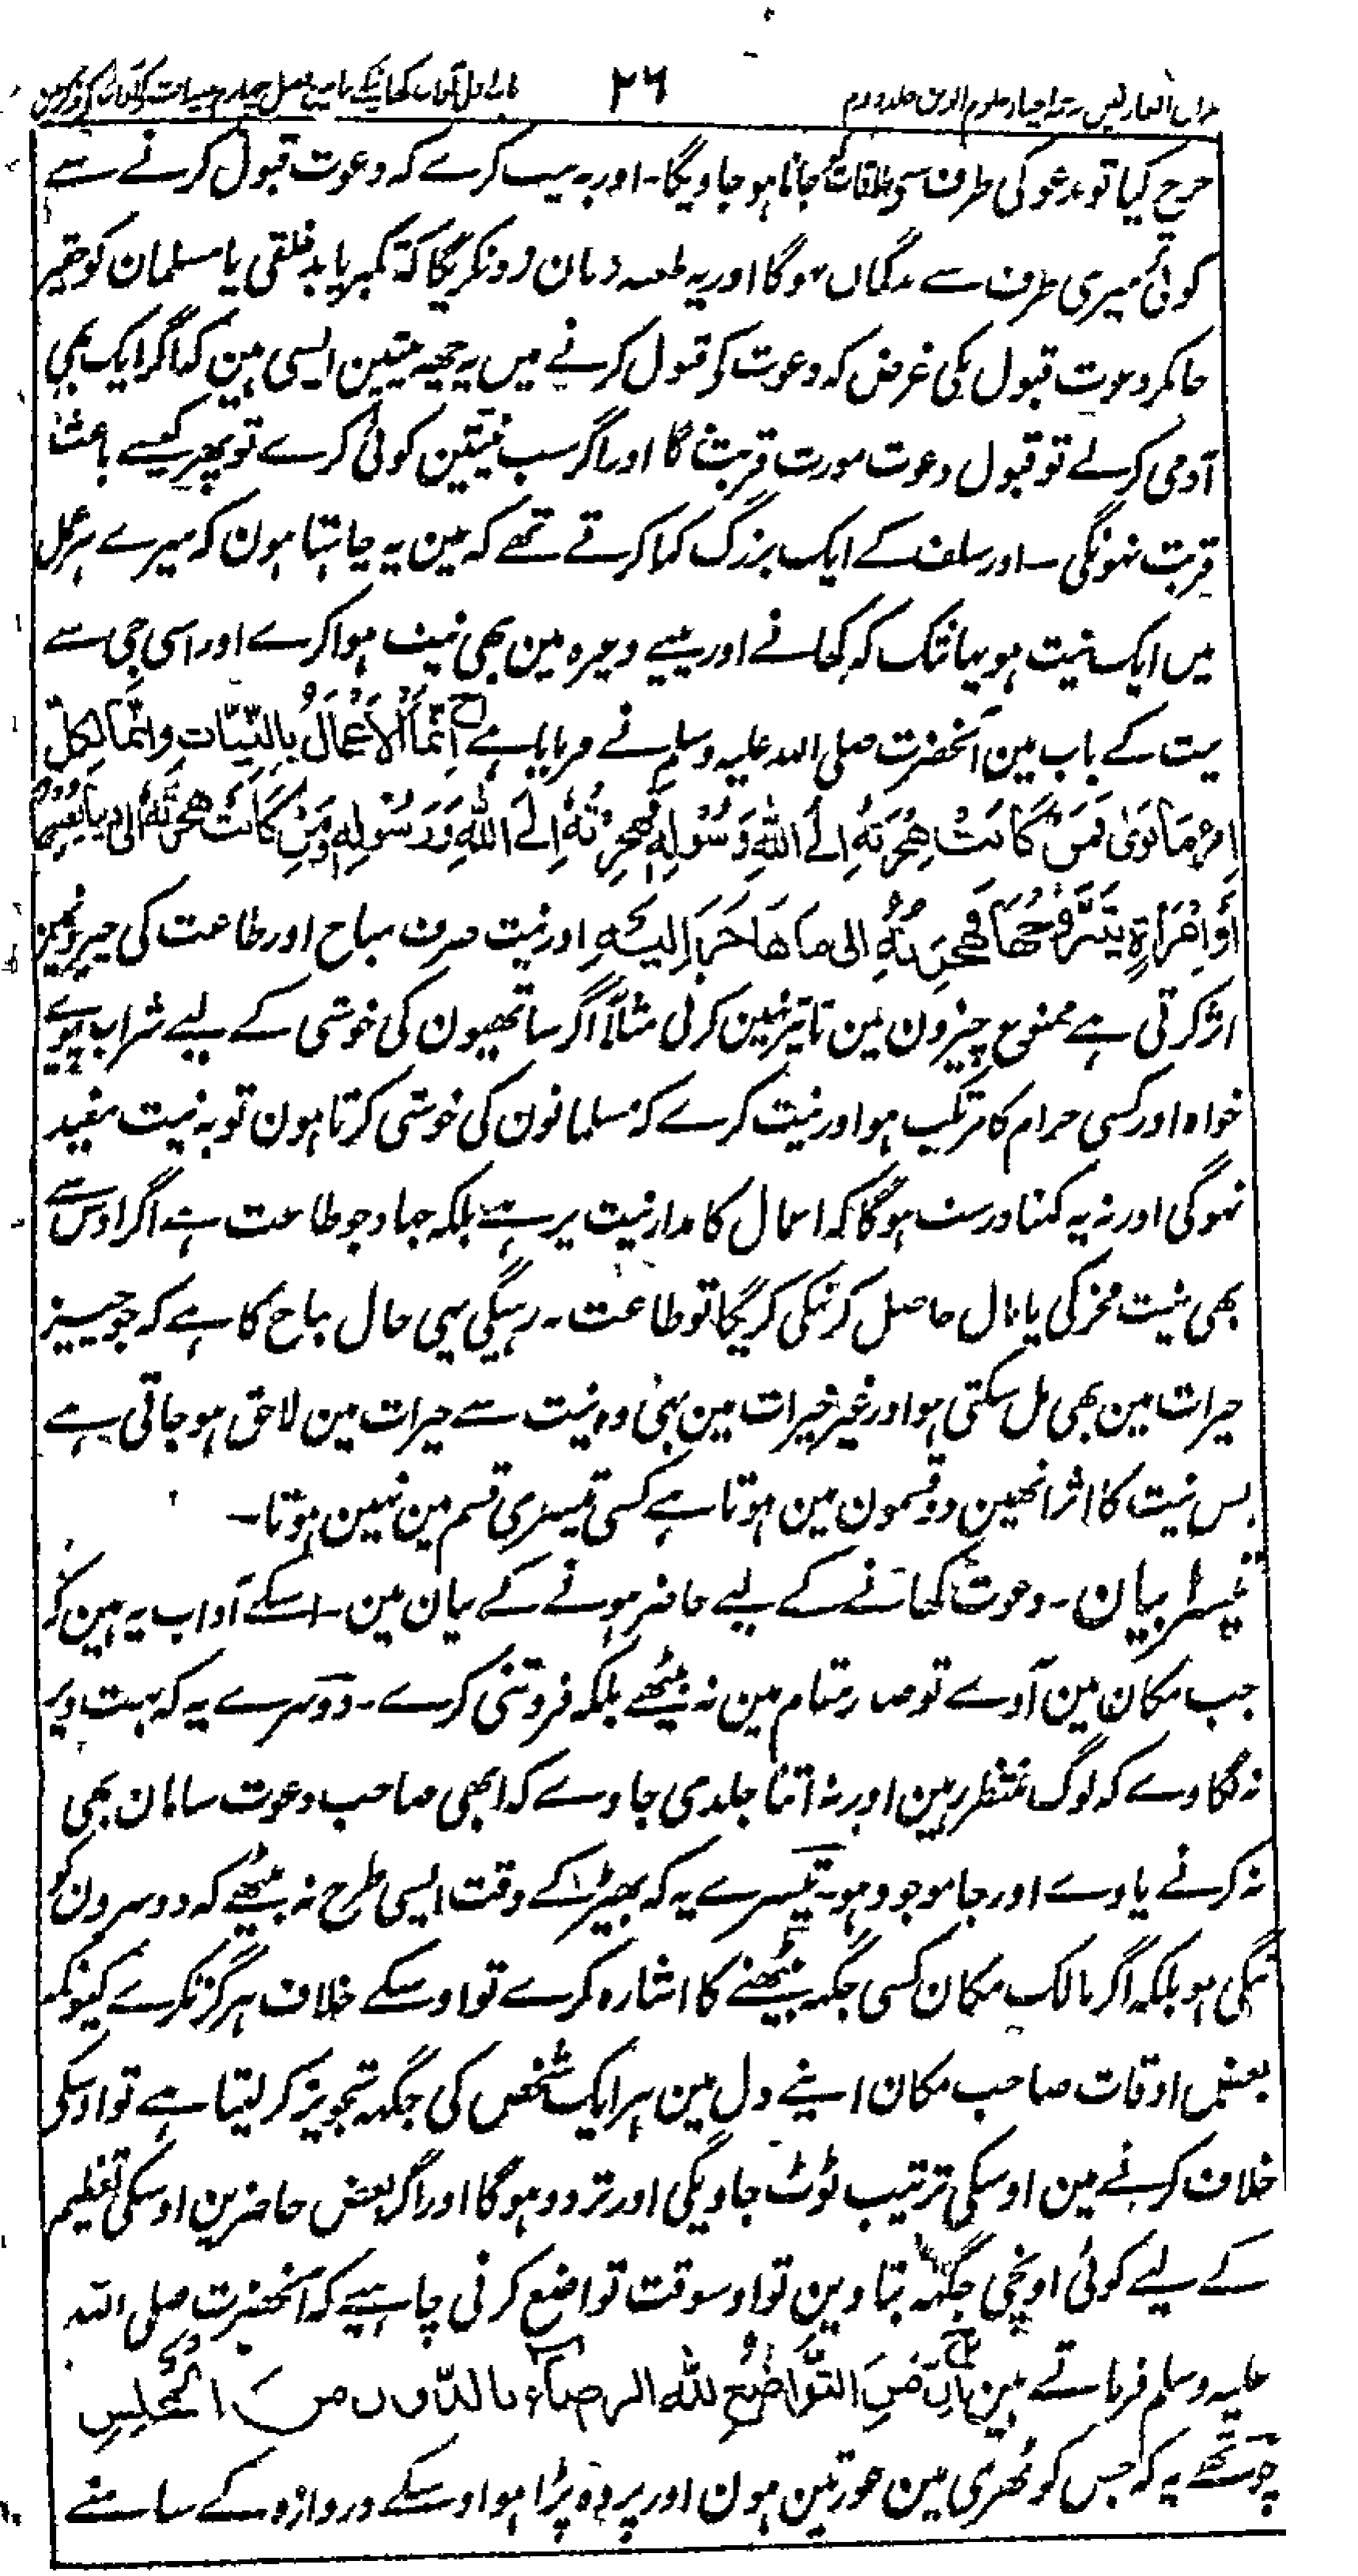 مذاق العارفین ترجمہ احیاء علوم الدین جلد دوم ۲۶
حرج کیا تو مدعو کی طرف سے بھی ملاقات کو جانا ہو جاویگا۔ اور یہ نیت کرے کہ دعوت قبول کرنے سے
کوئی میری طرف سے بدگماں ہوگا اور یہ طعنہ زبان زد نکریگا کہ تکبر یا بدخلقی یا مسلمان کو حقیر
جانکر دعوت قبول نکی غرض کہ دعوت کو قبول کرنے میں یہ چھ نیتین ایسی ہین کہ اگر ایک بھی
آدمی کرلے تو قبول دعوت موجب قربت ہوگا اور اگر سب نیتین کوئی کرے تو پھر کیسے باعث
قربت نہونگی۔ اور سلف کے ایک بزرگ کہا کرتے تھے کہ مین یہ چاہتا ہون کہ میرے ہر عمل
میں ایک نیت ہو یہانتک کہ کھانے اور پینے وغیرہ مین بھی نیت ہوا کرے اور اسی جی سے
نیت کے باب مین آنحضرت صلی اللہ علیہ وسلم نے فرمایا ہے اِنَّمَا الْاَعْمَالُ بِالنِّيَّاتِ وَاِنَّمَا لِكُلِّ
امْرِئٍ مَا نَوٰى فَمَنْ كَانَتْ هِجْرَتُهُ اِلَى اللهِ وَرَسُوْلِهِ فَهِجْرَتُهُ اِلَى اللهِ وَرَسُوْلِهِ وَمَنْ كَانَتْ هِجْرَتُهُ اِلى دنيا يُصِيْبُهَا
اَوِ امْرَاَةٍ يَتَزَوَّجُهَا فَهِجْرَتُهُ الى ما هَاجَرَ اِلَيْهِ اور نیت صرف مباح اور طاعت کی چیزونمین
اثر کرتی ہے ممنوع چیزون مین تاثیر نہین کرتی مثلاً اگر ساتھیون کی خوشی کے لیے شراب پیوے
خواہ اور کسی حرام کا مرتکب ہو اور نیت کرے کہ مسلمانون کی خوشی کرتا ہون تو یہ نیت مفید
نہوگی اور نہ یہ کہنا درست ہوگا کہ اعمال کا مدار نیت پر ہے بلکہ جہاد جو طاعت ہے اگر اوس سے
بھی نیت فخر کی یا مال حاصل کرنیکی کریگا تو طاعت نہ رہیگی یہی حال مباح کا ہے کہ جو چیز
خیرات مین بھی مل سکتی ہو اور غیر خیرات مین بھی وہ نیت سے خیرات مین لاحق ہو جاتی ہے
پس نیت کا اثر انھین دو قسمون مین ہوتا ہے کسی تیسری قسم مین نہین ہوتا۔
تیسرا بیان۔ دعوت کھانے کے لیے حاضر ہونے کے بیان مین۔ اسکے آداب یہ ہین کہ
جب مکان مین آوے تو صدر مقام مین نہ بیٹھے بلکہ فروتنی کرے۔ دوسرے یہ کہ بہت دیر
نہ لگاوے کہ لوگ منتظر رہین اور نہ اتنا جلدی جاوے کہ ابھی صاحب دعوت سامان بھی
نہ کرنے پاوے اور جا موجود ہو۔ تیسرے یہ کہ بھیڑ کے وقت ایسی طرح نہ بیٹھے کہ دوسرون کو
تنگی ہو بلکہ اگر مالک مکان کسی جگہ بیٹھنے کا اشارہ کرے تو اوسکے خلاف ہرگز نکرے کیونکہ
بعض اوقات صاحب مکان اپنے دل مین ہر ایک شخص کی جگہ تجویز کر لیتا ہے تو اوسکی
خلاف کرنے مین اوسکی ترتیب ٹوٹ جاویگی اور تردد ہوگا اور اگر بعض حاضرین اوسکی تعظیم
کے لیے کوئی اونچی جگہ بتا دین تو اوسوقت تواضع کرنی چاہیے کہ آنحضرت صلی اللہ
علیہ وسلم فرماتے ہین اِنَّ مِنَ التَّوَاضُعِ لله الرضاء بالدون من الْمَجْلِسِ
چوتھے یہ کہ جس کوٹھری مین عورتین ہون اور پردہ پڑا ہو اوسکے دروازہ کے سامنے